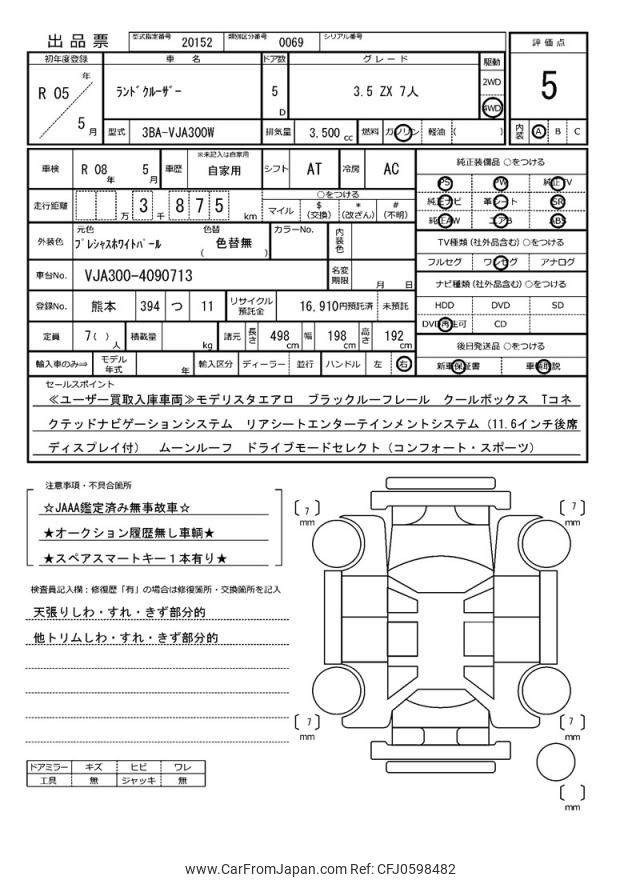 出品票
型式指定番号 20152 類別区分番号 0069 シリアル番号
評価点
5
内装 A B C
初年度登録 車名 ドア数 グレード 駆動
R 05 年 5 月
ﾗﾝﾄﾞｸﾙｰｻﾞｰ
5 D
3.5 ZX 7人
2WD
4WD
型式 3BA-VJA300W 排気量 3,500 cc 燃料 ガソリン 軽油 ( )
車検 R 08 年 5 月 車歴 ※未記入は自家用 自家用 シフト AT 冷房 AC
走行距離 万 3 千 8 7 5 km
○をつける
マイル $ (交換) * (改ざん) # (不明)
外装色 元色 ﾌﾟﾚｼｬｽﾎﾜｲﾄﾊﾟｰﾙ 色替 ( 色替無 ) カラーNo. 内装色
車台No. VJA300-4090713 名変期限 月 日
登録No. 熊本 394 つ 11 リサイクル預託金 16,910円預託済 未預託
定員 7( ) 人 積載量 kg 諸元 長さ 498 cm 幅 198 cm 高さ 192 cm
輸入車のみ⇒ モデル年式 年 輸入区分 ディーラー 並行 ハンドル 左 右
純正装備品 ○をつける
PS PW 純正TV
純正ナビ 革シート SR
純正AW エアB ABS
TV種類(社外品含む) ○をつける
フルセグ ワンセグ アナログ
ナビ種類(社外品含む) ○をつける
HDD DVD SD
DVD再生可 CD
後日発送品 ○をつける
新車保証書 車輌取説
セールスポイント
≪ユーザー買取入庫車両≫モデリスタエアロ ブラックルーフレール クールボックス Tコネ
クテッドナビゲーションシステム リアシートエンターテインメントシステム(11.6インチ後席
ディスプレイ付) ムーンルーフ ドライブモードセレクト(コンフォート・スポーツ)
注意事項・不具合箇所
☆JAAA鑑定済み無事故車☆
★オークション履歴無し車輌★
★スペアスマートキー1本有り★
検査員記入欄：修復歴「有」の場合は修復箇所・交換箇所を記入
天張りしわ・すれ・きず部分的
他トリムしわ・すれ・きず部分的
ドアミラー キズ ヒビ ワレ
工具 無 ジャッキ 無
[ 7 ] mm
[ 7 ] mm
[ 7 ] mm
[ 7 ] mm
[ ] mm
www.CarFromJapan.com Ref: CFJ0598482